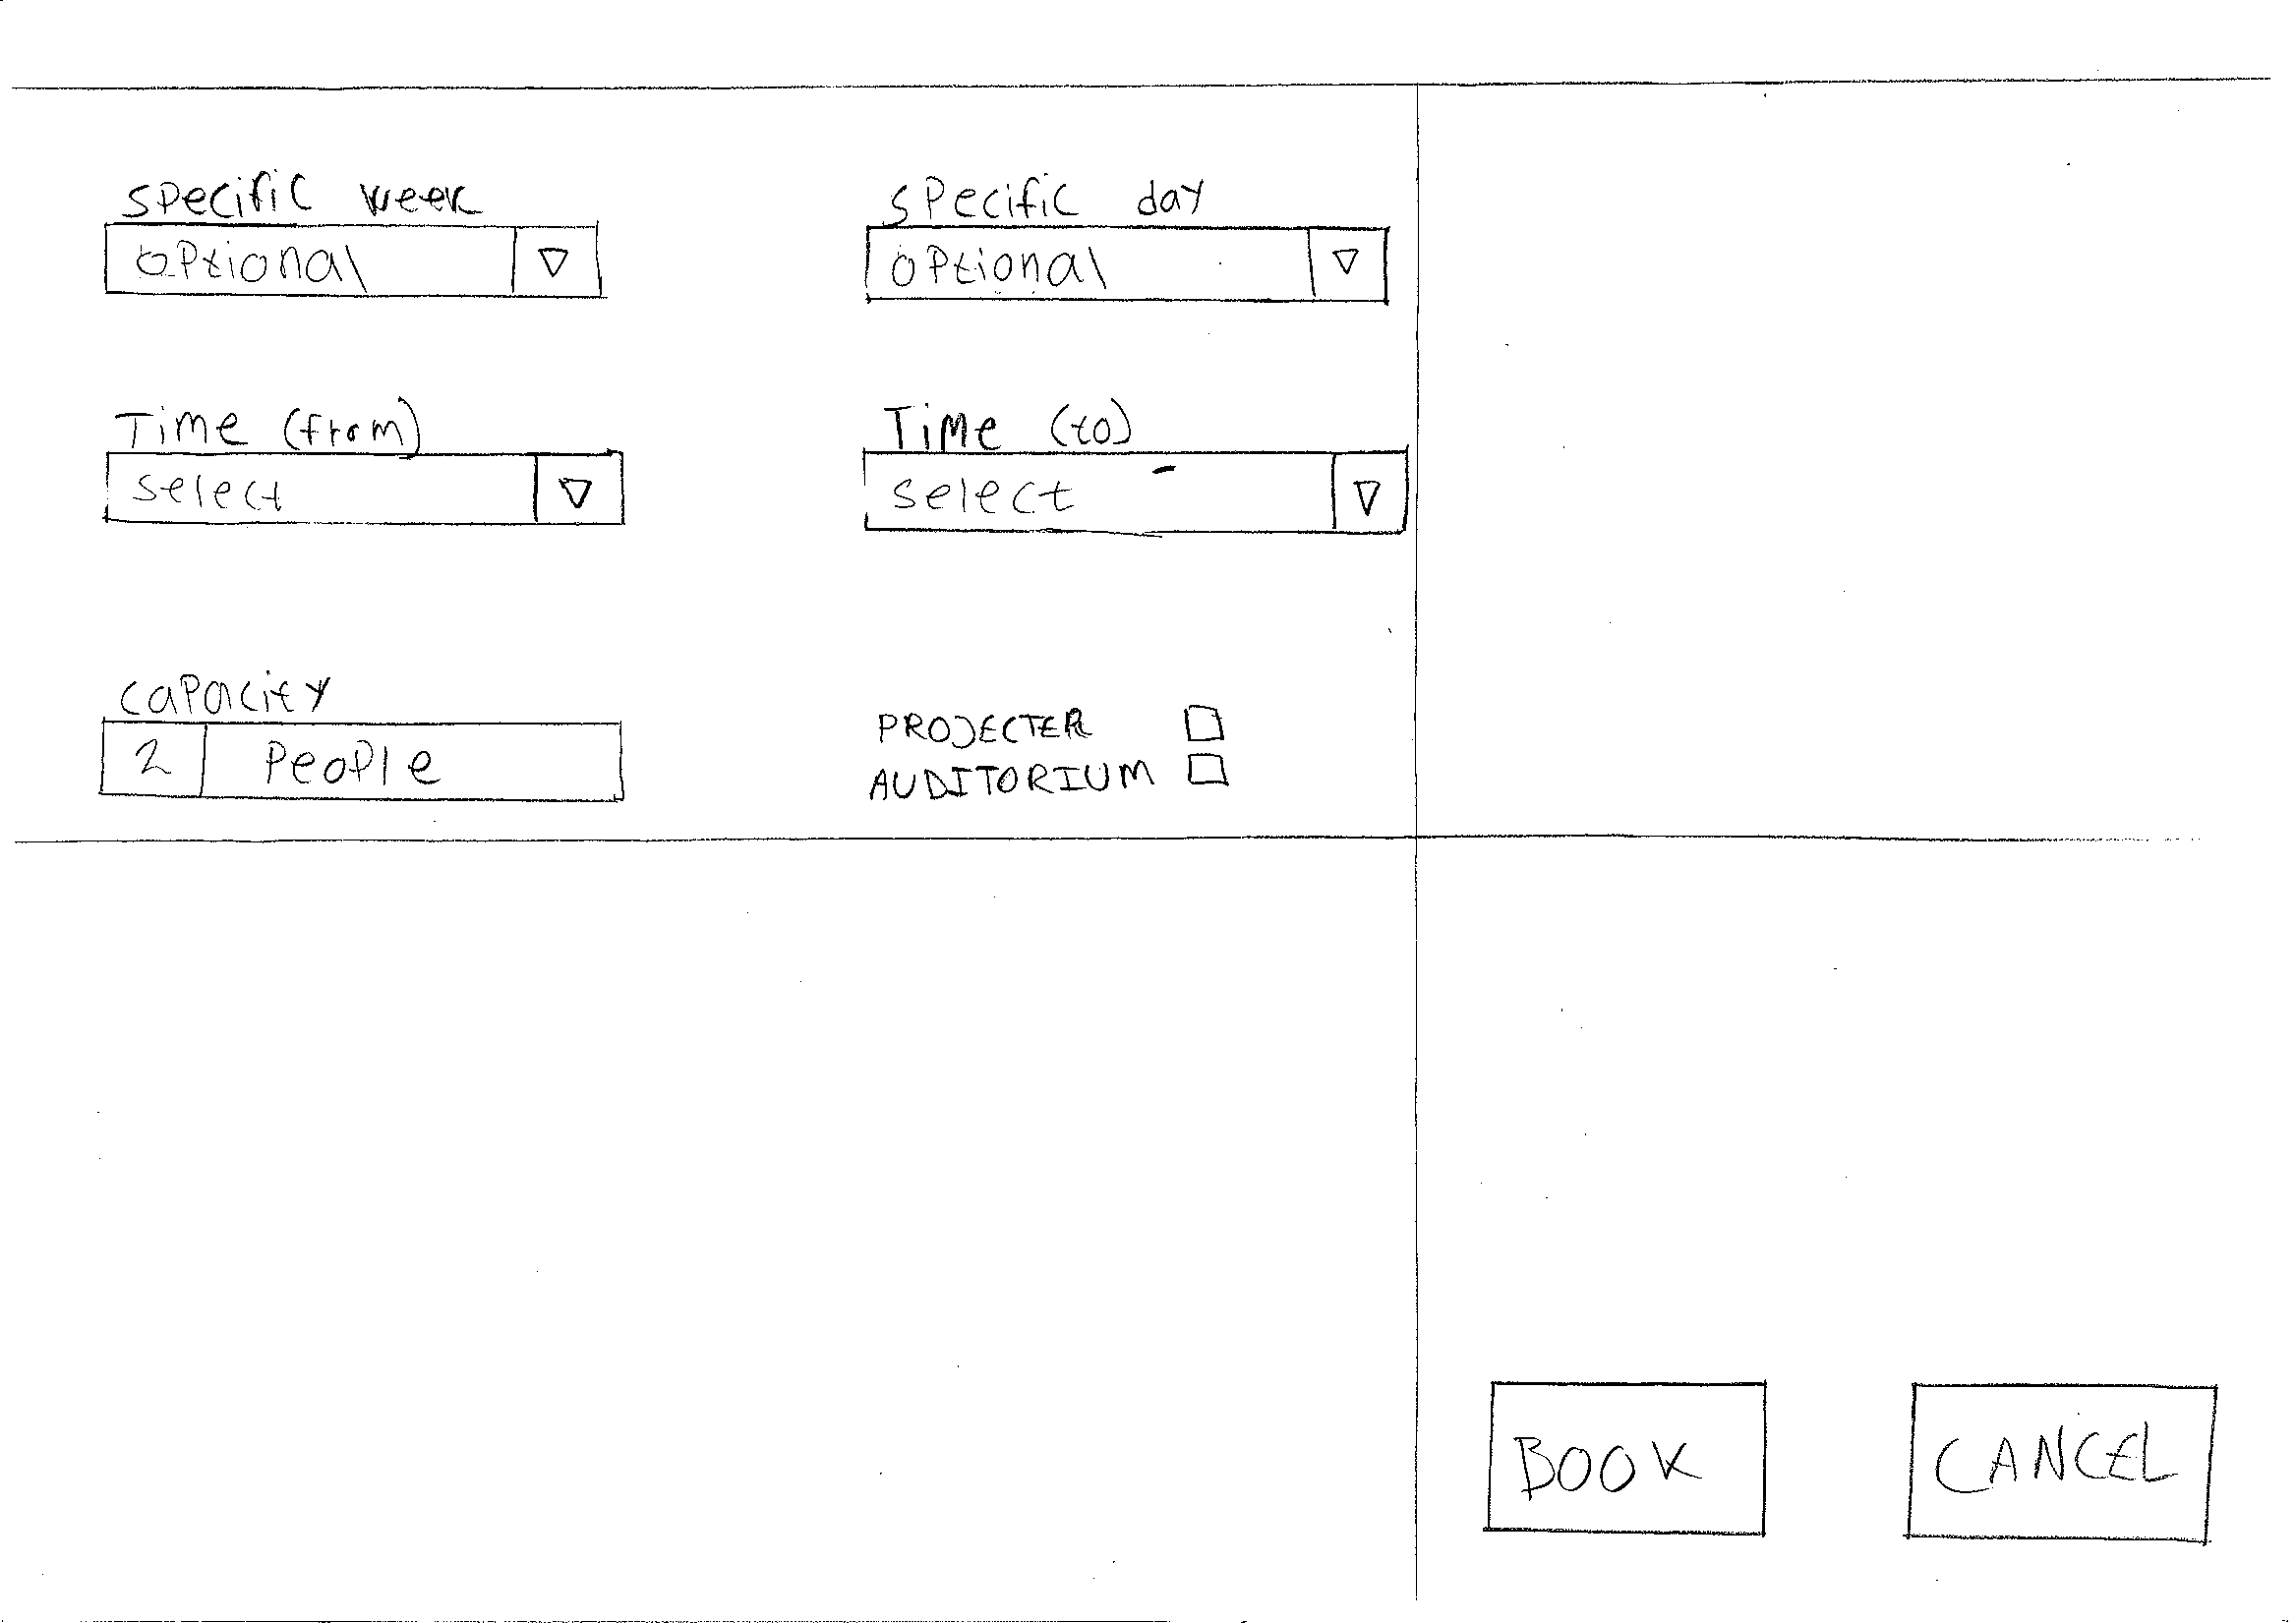 Specific week
optional
Specific day
optional
Time (from)
select
Time (to)
select
capacity
2 People
PROJECTER
AUDITORIUM
BOOK
CANCEL